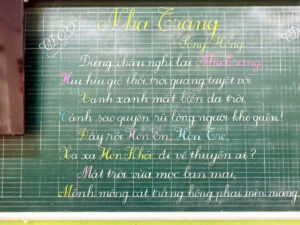 Nha Trang
Sóng Hồng
Dừng chân nghỉ lại Nha Trang
Hiu hiu gió thổi, trời quang tuyệt vời
Xanh xanh mặt biển da trời,
Cảnh sao quyến rũ lòng người khó quên!
Đây rồi Hòn Én, Hòn Tre,
Xa xa Hòn Khói đi về thuyền ai?
Mặt trời vừa mọc ban mai,
Mênh mông cát trắng hồng phai mịn màng